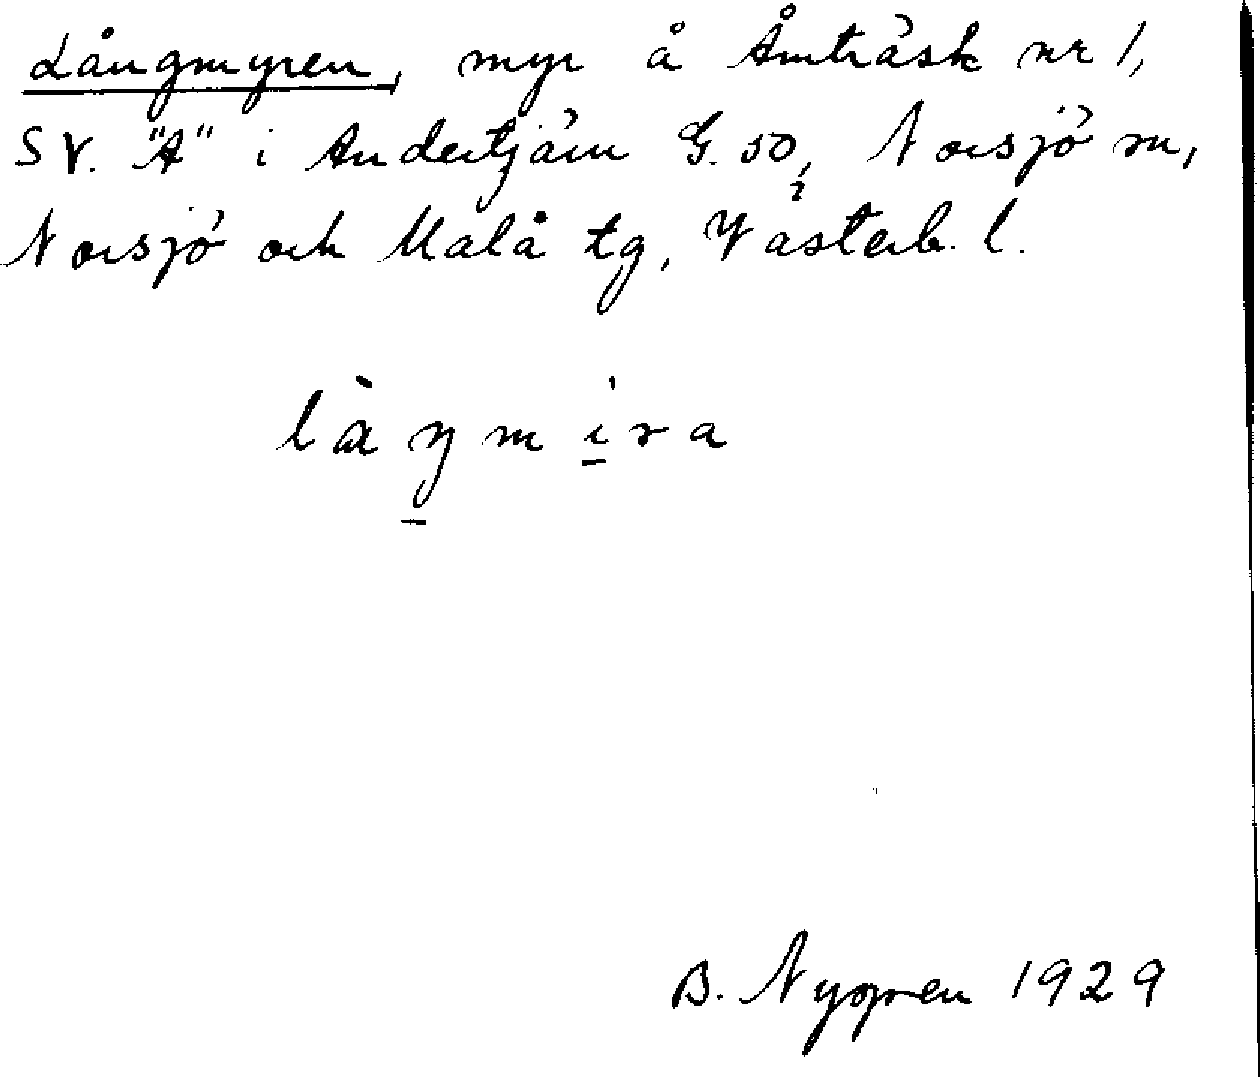 Långmyren, myr å Åmträsk nr 1,
SV. "A" i Andertjärn G. 50, Norsjö sn,
Norsjö och Malå tg, Västerb. l.
làŋmira
B. Nygren 1929